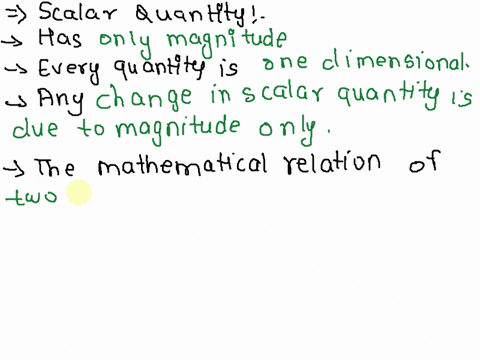 ⇒ Scalar Quantity!.
→ Has only magnitude
→ Every quantity is one dimensional.
→ Any change in scalar quantity is
due to magnitude only.
→ The mathematical relation of
two